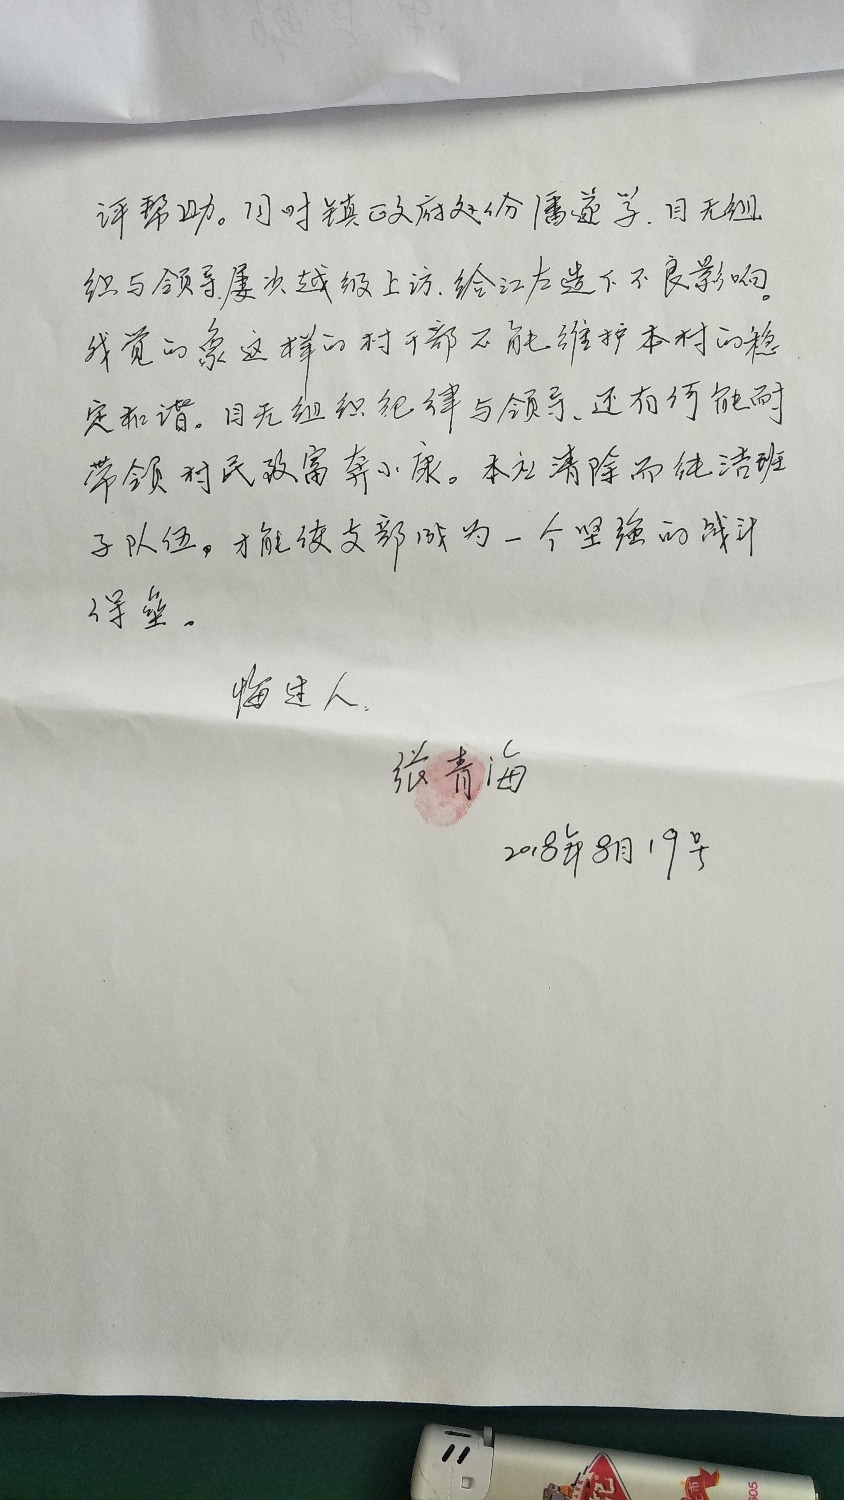 评帮助。同时镇政府处份潘遂学、目无组
织与领导,屡次越级上访、给江左造下不良影响。
我觉的象这样的村干部不能维护本村的稳
定和谐。目无组织纪律与领导、还有何能耐
带领村民致富奔小康。本应清除而纯洁班
子队伍,才能使支部成为一个坚强的战斗
保垒。
悔过人:
张青海
2018年8月19号